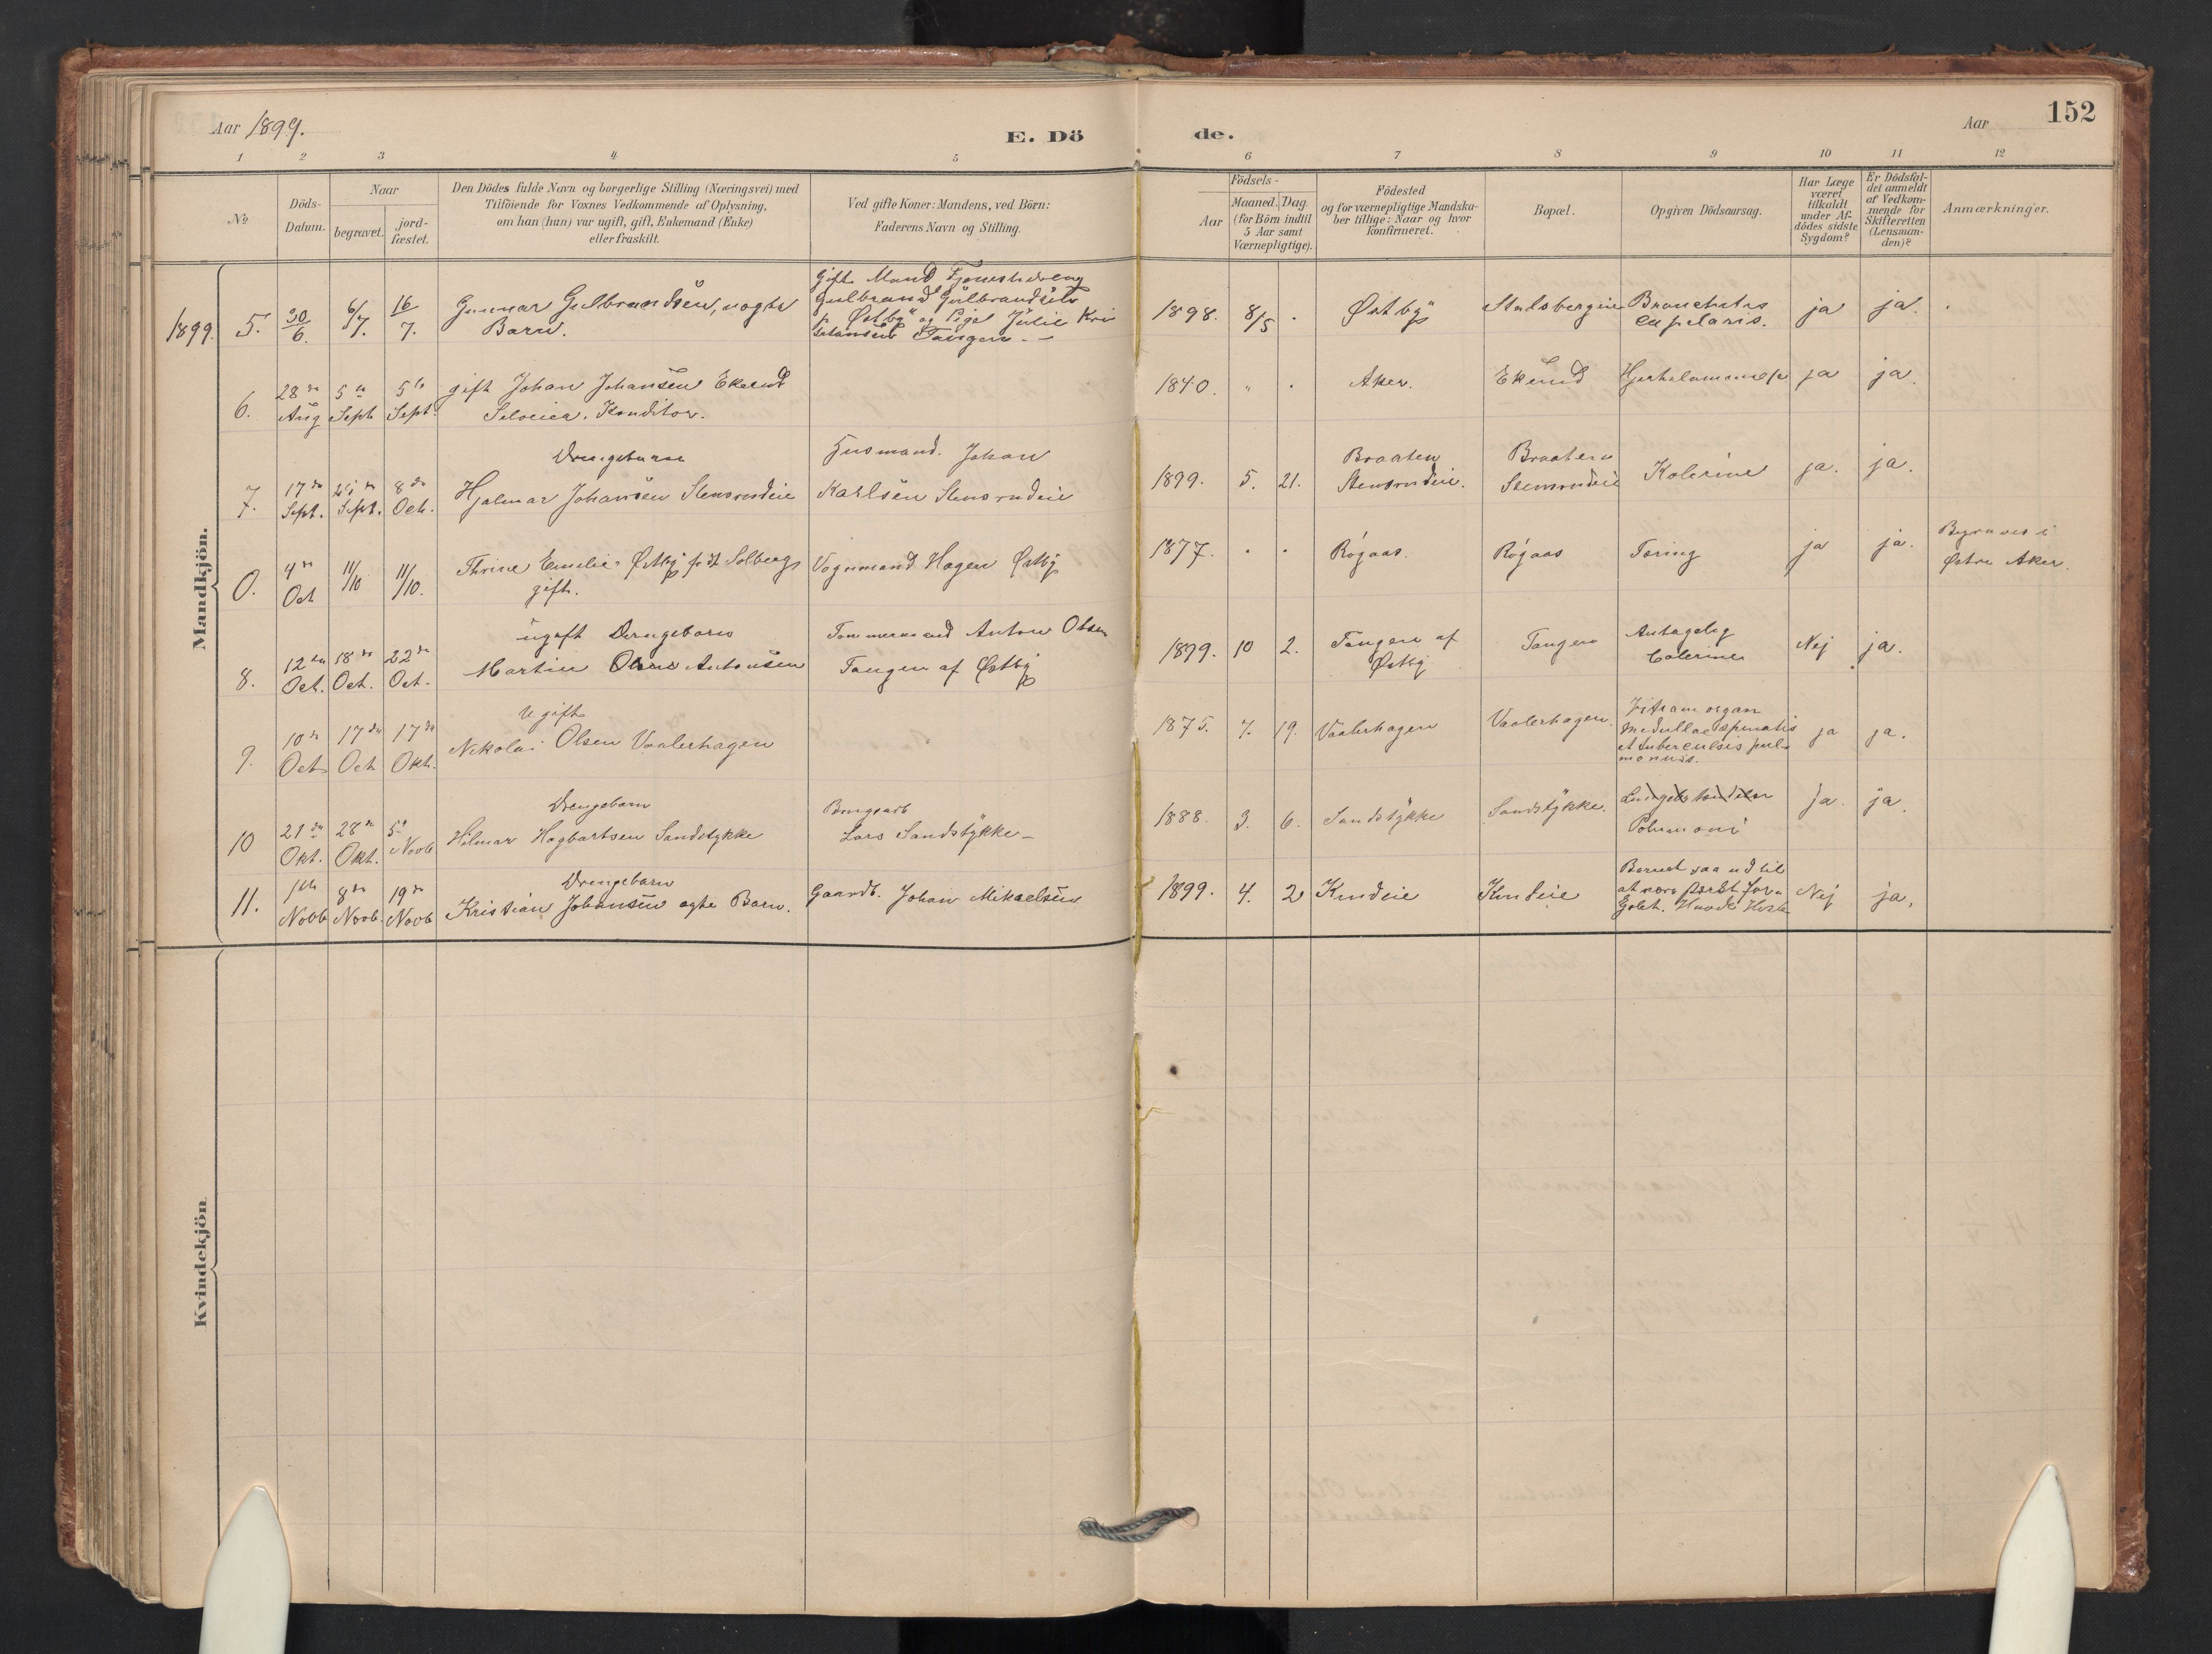 Aar 1899.
E. Dö
de.
Aar
152
1 2 3 4 5 6 7 8 9 10 11 12
No
Döds-
Datum.
Naar
begravet.
jord-
fæstet.
Den Dödes fulde Navn og borgerlige Stilling (Næringsvei) med
Tilföiende for Voxnes Vedkommende af Oplysning,
om han (hun) var ugift, gift, Enkemand (Enke)
eller fraskilt.
Ved gifte Koner: Mandens, ved Börn:
Faderens Navn og Stilling.
Födsels-
Aar
Maaned.
Dag.
(for Börn indtil
5 Aar samt
Værnepligtige).
Födested
og for værnepligtige Mandska-
ber tillige: Naar og hvor
konfirmeret.
Bopæl.
Opgiven Dödsaarsag.
Har Læge
været
tilkaldt
under Af-
dödes sidste
Sygdom?
Er Dödsfal-
det anmeldt
af Vedkom-
mende for
Skifteretten
(Lensman-
den)?
Anmærkninger.
Mandkjön.
1899. 5. 30/6. 6/7. 16/7.
Gunnar Gulbrandsen, uægte
Barn.
Gift Mand Tjenestedreng
Gulbrand Gulbrandsen
p Østby og Pige Julie Kri
stiansen Tangen. -
1898. 8/5 .
Østby
Stulsbergeie
Bronchitis
capilaris.
ja
ja.
6. 28de Aug 5te Sept 5te Sept.
gift Johan Johansen Ekerud
Seloeier. Konditor.
1840. " .
Aker.
Ekerud
ja
ja.
7. 17de Sept. Sept. 8de Oct.
Drengebarn
Hjalmar Johansen Stensrudeie
Husmand. Johan
Karlsen Stensrudeie
1899. 5. 21.
Braaten
Stensrudeie.
Braaten
Stensrudeie
Kolerine
ja.
ja.
0. 4de Oct 11/10 11/10.
Thrine Emilie Østby født Solberg
gift.
Vognmand Hagen Østby
1877. . .
Rögaas.
Rögaas
Tæring
ja
ja.
Begraves i
Østre Aker.
8. 12te Oct. 18de Oct. 22de Oct.
ugift Drengebarn
Martin Antonsen
Tömmermand Anton Olsen
Tangen af Østby
1899. 10 2.
Tangen af
Østby
Tangen
Antagelig
Colerine
Nej
ja.
9. 10de Oct 17de Oct 17de Okt.
Ugift
Nikolai Olsen Vaalerhagen
1875. 7. 19.
Vaalerhagen
Vaalerhagen.
organ
Medullae spinalis
et tuberculsis pul-
monus.
ja
ja.
10 21de Okt. 28de Okt. 5te Novb
Drengebarn
Hilmar Hagbartsen Sandstykke
Brugsarb
Lars Sandstykke -
1888. 3. 6.
Sandstykke
Sandstykke.
Polumoni
Ja
ja.
11. 1ste Novb 8de Novb. 19de Novb
Drengebarn
Kristian Johansen ægte Barn.
Gaardb. Johan Mikaelsen
1899. 4. 2
Krudeie
Krudeie
Barnet saa ud til
at være
Nej
ja.
Kvindekjön